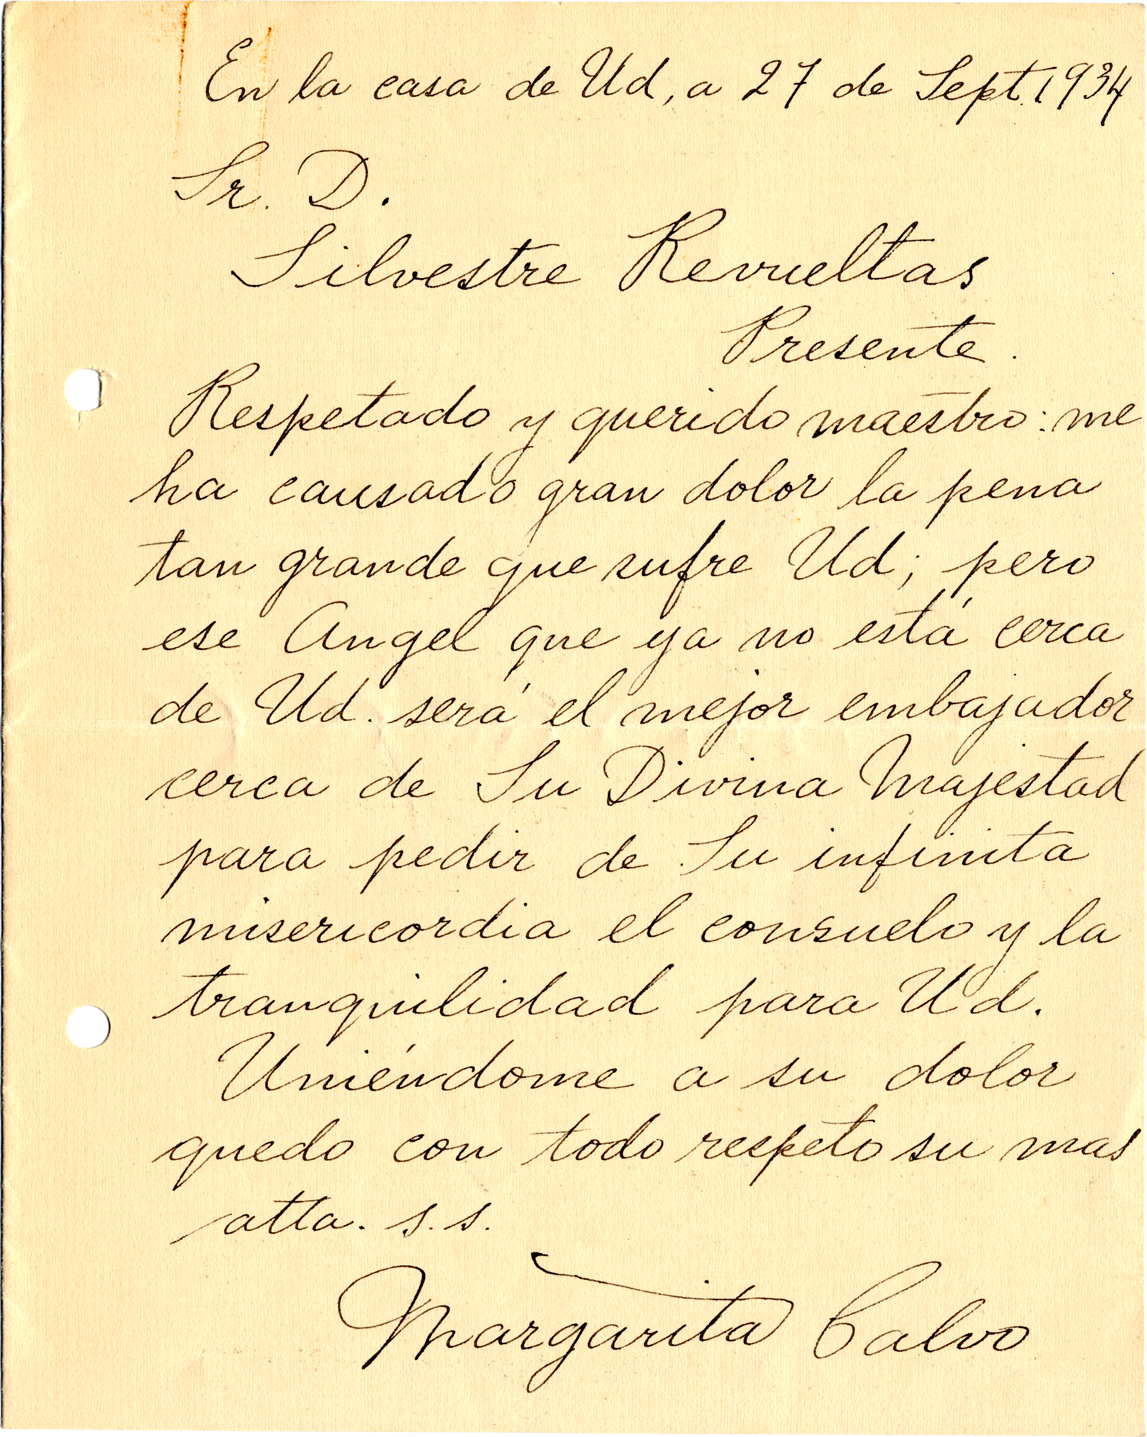 En la casa de Ud, a 27 de Sept. 1934
Sr. D.
Silvestre Revueltas
Presente.
Respetado y querido maestro: me
ha causado gran dolor la pena
tan grande que sufre Ud; pero
ese Angel que ya no está cerca
de Ud. será el mejor embajador
cerca de Su Divina Majestad
para pedir de Su infinita
misericordia el consuelo y la
tranquilidad para Ud.
Uniéndome a su dolor
quedo con todo respeto su mas
atta. s.s.
Margarita Calvo